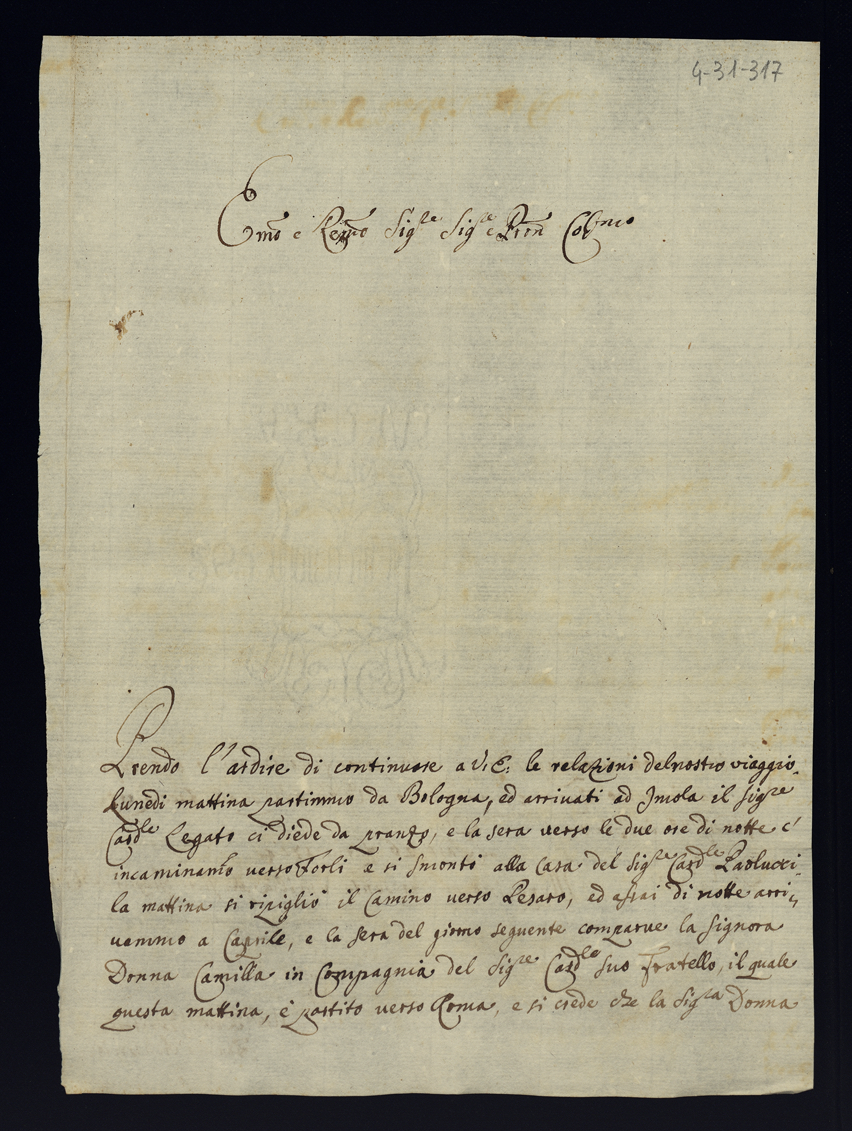 4-31-317
Emo e Revmo Sigre Sigre Pron Colmo
Prendo l'ardire di continuare a V: E: le relazioni del nostro viaggio.
Lunedi mattina partimmo da Bologna, ed arrivati ad Imola il Sigre
Cardle Legato ci diede da pranzo, e la sera verso le due ore di notte c'
incaminamo verso Forli e si smontò alla Casa del Sigre Cardle Paolucci.
la mattina si ripigliò il Camino verso Pesaro, ed assai di notte arri-
uammo a Caprile, e la sera del giorno seguente comparue la Signora
Donna Camilla in Compagnia del Sigre Cardle suo Fratello, il quale
questa mattina, è partito verso Roma, e si crede che la Sigra Donna